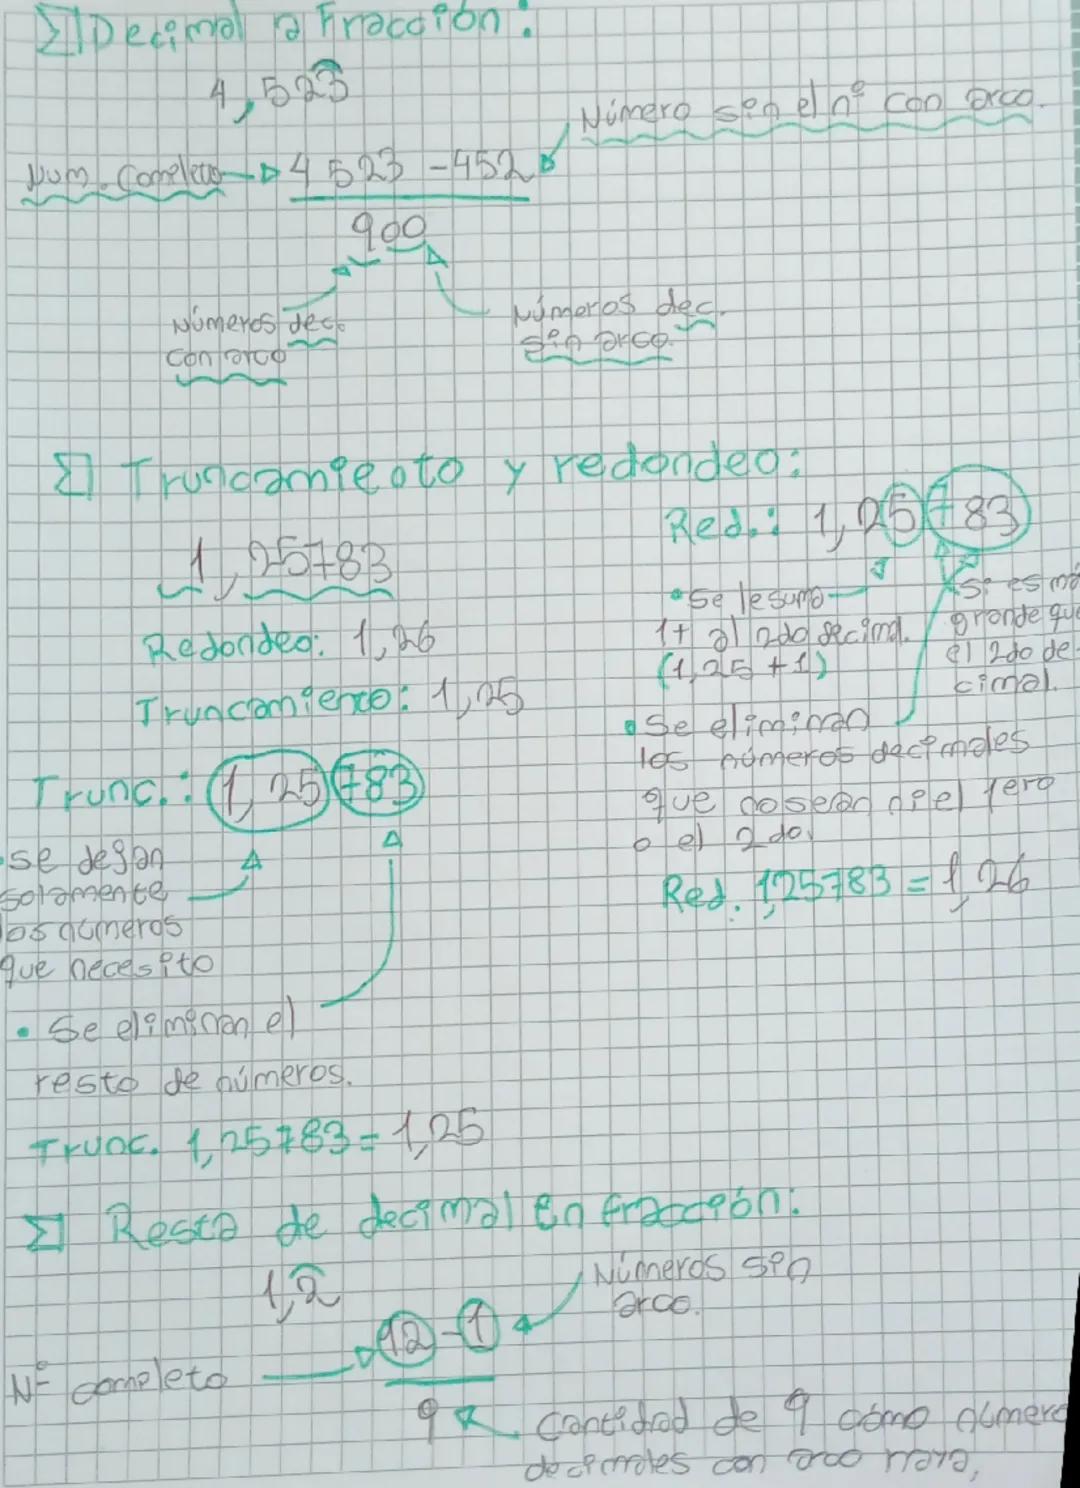 Decimal a Fracción:
4,523
Número sin el nº con arco.
Num. Completo → 4523 - 452
900
Números dec. con arco
Números dec. sin arco.
Truncamiento y redondeo:
1,25783
Redondeo: 1,26
Truncamiento: 1,25
Trunc.: 1,25783
• se dejan
solamente
los números
que necesito
• Se eliminan el
resto de números.
Trunc. 1,25783 = 1,25
Red.: 1,25783
• se le suma
1+ al 2do decimal.
(1,25 + 1)
Si es má
grande que
el 2do de-
cimal.
• Se eliminan
los números decimales
que no sean ni el 1ero
o el 2do.
Red. 1,25783 = 1,26
Resta de decimal en fracción:
1,2
Números sin
arco.
Nº completo → 12 - 1
9
Cantidad de 9 como número
decimales con arco